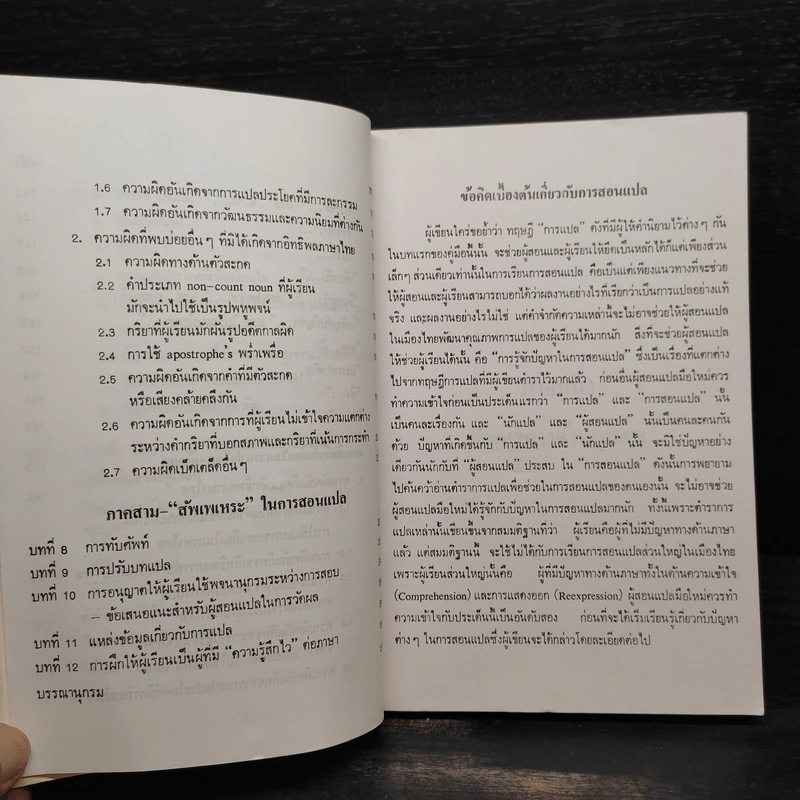 1.6 ความผิดอันเกิดจากการแปลประโยคที่มีการละกรรม
1.7 ความผิดอันเกิดจากวัฒนธรรมและความนิยมที่ต่างกัน
2. ความผิดที่พบบ่อยอื่นๆ ที่มิได้เกิดจากอิทธิพลภาษาไทย
2.1 ความผิดทางด้านตัวสะกด
2.2 คำประเภท non-count noun ที่ผู้เรียน
มักจะนำไปใช้เป็นรูปพหูพจน์
2.3 กริยาที่ผู้เรียนมักผันรูปอดีตกาลผิด
2.4 การใช้ apostrophe's พร่ำเพรื่อ
2.5 ความผิดอันเกิดจากคำที่มีตัวสะกด
หรือเสียงคล้ายคลึงกัน
2.6 ความผิดอันเกิดจากการที่ผู้เรียนไม่เข้าใจความแตกต่าง
ระหว่างคำกริยาที่บอกสภาพและกริยาที่เน้นการกระทำ
2.7 ความผิดเบ็ดเตล็ดอื่นๆ
ภาคสาม–“สัพเพเหระ” ในการสอนแปล
บทที่ 8 การทับศัพท์
บทที่ 9 การปรับบทแปล
บทที่ 10 การอนุญาตให้ผู้เรียนใช้พจนานุกรมระหว่างการสอบ
– ข้อเสนอแนะสำหรับผู้สอนแปลในการวัดผล
บทที่ 11 แหล่งข้อมูลเกี่ยวกับการแปล
บทที่ 12 การฝึกให้ผู้เรียนเป็นผู้ที่มี “ความรู้สึกไว” ต่อภาษา
บรรณานุกรม
ข้อคิดเบื้องต้นเกี่ยวกับการสอนแปล
ผู้เขียนใคร่ขอย้ำว่า ทฤษฎี “การแปล” ดังที่มีผู้ให้คำนิยามไว้ต่างๆ กัน
ในบทแรกของคู่มือนี้นั้น จะช่วยผู้สอนและผู้เรียนให้ยึดเป็นหลักได้ก็แต่เพียงส่วน
เล็กๆ ส่วนเดียวเท่านั้นในการเรียนการสอนแปล คือเป็นแต่เพียงแนวทางที่จะช่วย
ให้ผู้สอนและผู้เรียนสามารถบอกได้ว่าผลงานอย่างไรที่เรียกว่าเป็นการแปลอย่างแท้
จริง และผลงานอย่างไรไม่ใช่ แต่คำจำกัดความเหล่านี้จะไม่อาจช่วยให้ผู้สอนแปล
ในเมืองไทยพัฒนาคุณภาพการแปลของผู้เรียนได้มากนัก สิ่งที่จะช่วยผู้สอนแปล
ให้ช่วยผู้เรียนได้นั้น คือ “การรู้จักปัญหาในการสอนแปล” ซึ่งเป็นเรื่องที่แตกต่าง
ไปจากทฤษฎีการแปลที่มีผู้เขียนตำราไว้มากแล้ว ก่อนอื่นผู้สอนแปลมือใหม่ควร
ทำความเข้าใจก่อนเป็นประเด็นแรกว่า “การแปล” และ “การสอนแปล” นั้น
เป็นคนละเรื่องกัน และ “นักแปล” และ “ผู้สอนแปล” นั้นเป็นคนละคนกัน
ด้วย ปัญหาที่เกิดขึ้นกับ “การแปล” และ “นักแปล” นั้น จะมิใช่ปัญหาอย่าง
เดียวกันนักกับที่ “ผู้สอนแปล” ประสบ ใน “การสอนแปล” ดังนั้นการพยายาม
ไปค้นคว้าอ่านตำราการแปลเพื่อช่วยในการสอนแปลของตนเองนั้น จะไม่อาจช่วย
ผู้สอนแปลมือใหม่ได้รู้จักกับปัญหาในการสอนแปลมากนัก ทั้งนี้เพราะตำราการ
แปลเหล่านั้นเขียนขึ้นจากสมมติฐานที่ว่า ผู้เรียนคือผู้ที่ไม่มีปัญหาทางด้านภาษา
แล้ว แต่สมมติฐานนี้ จะใช้ไม่ได้กับการเรียนการสอนแปลส่วนใหญ่ในเมืองไทย
เพราะผู้เรียนส่วนใหญ่นั้นคือ ผู้ที่มีปัญหาทางด้านภาษาทั้งในด้านความเข้าใจ
(Comprehension) และการแสดงออก (Reexpression) ผู้สอนแปลมือใหม่ควรทำ
ความเข้าใจกับประเด็นนี้เป็นอันดับสอง ก่อนที่จะได้เริ่มเรียนรู้เกี่ยวกับปัญหา
ต่างๆ ในการสอนแปลซึ่งผู้เขียนจะได้กล่าวโดยละเอียดต่อไป